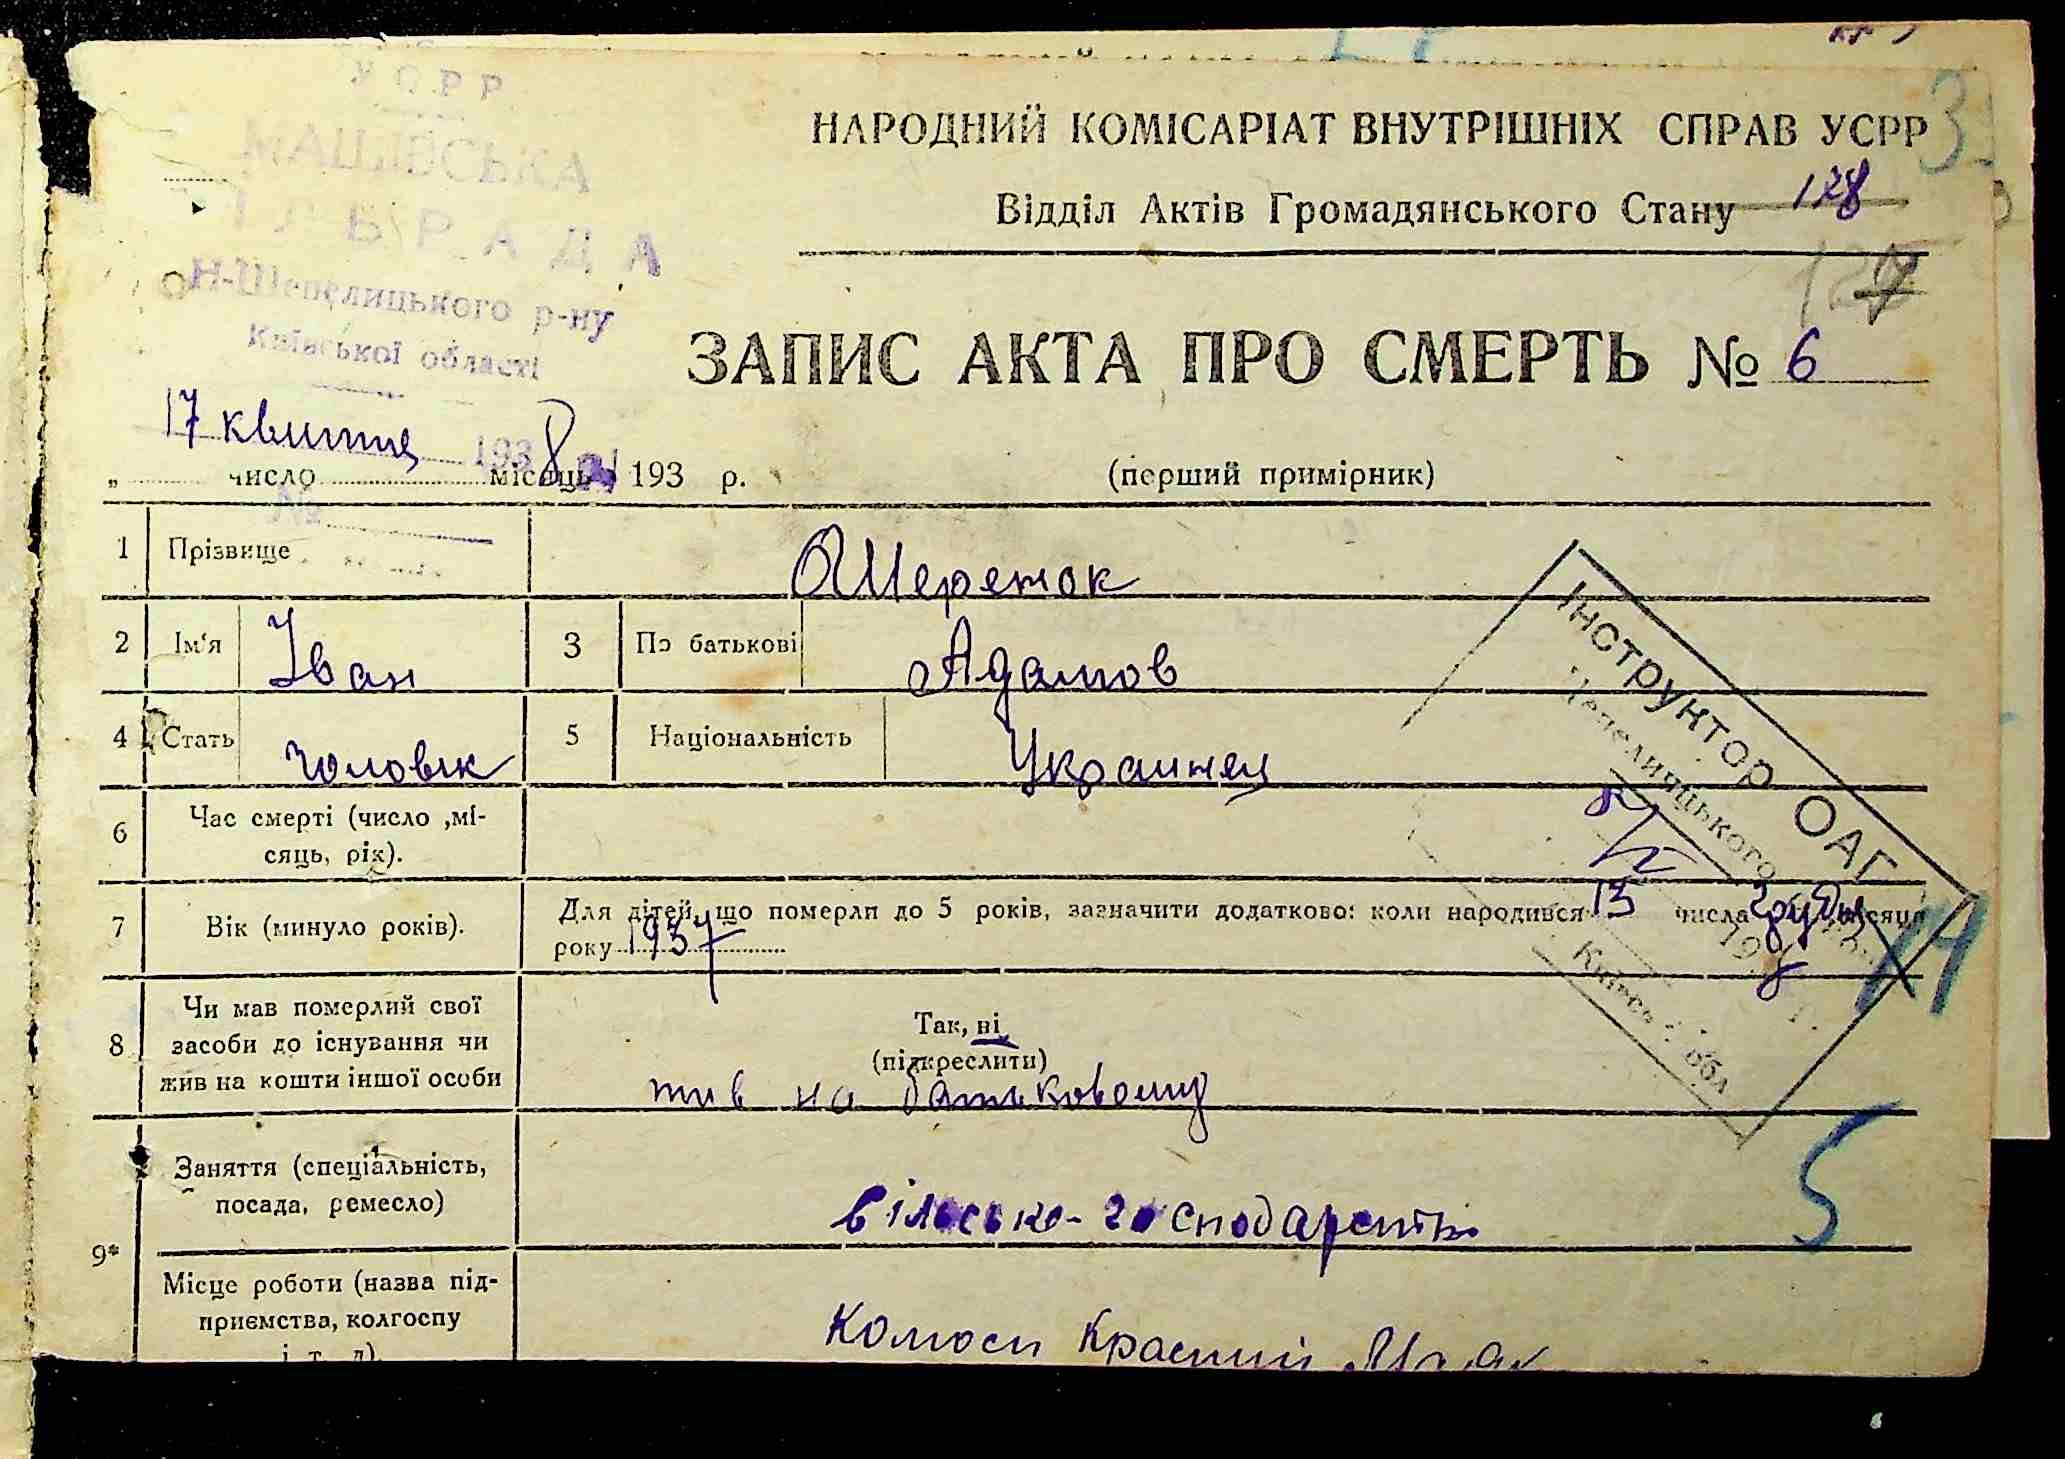 УСРР
МАШІВСЬКА
РАДА
Н-Шепелицького р-ну
Київської області
НАРОДНИЙ КОМІСАРІАТ ВНУТРІШНІХ СПРАВ УСРР
Відділ Актів Громадянського Стану 128
ЗАПИС АКТА ПРО СМЕРТЬ № 6
17 квитня 1938
„ число місяць 193 р.
(перший примірник)
№
1 Прізвище
2 Ім'я Іван 3 По батькові Адамов
4 Стать Чоловік 5 Національність Украинец
6 Час смерті (число ,мі-
сяць, рік).
7 Вік (минуло років). Для дітей, що померли до 5 років, зазначити додатково: коли народився 13 числа грудня місяця
року 1937
8 Чи мав померлий свої
засоби до існування чи
жив на кошти іншої особи
Так, ні
(підкреслити)
жив на батьковому
9*
Заняття (спеціальність,
посада, ремесло)
сільсько-господарств
Місце роботи (назва під-
приємства, колгоспу
і т. д).
Колгосп Красний Маяк
Інструктор ОАГС
Шепелицького
Київськ обл
14
5